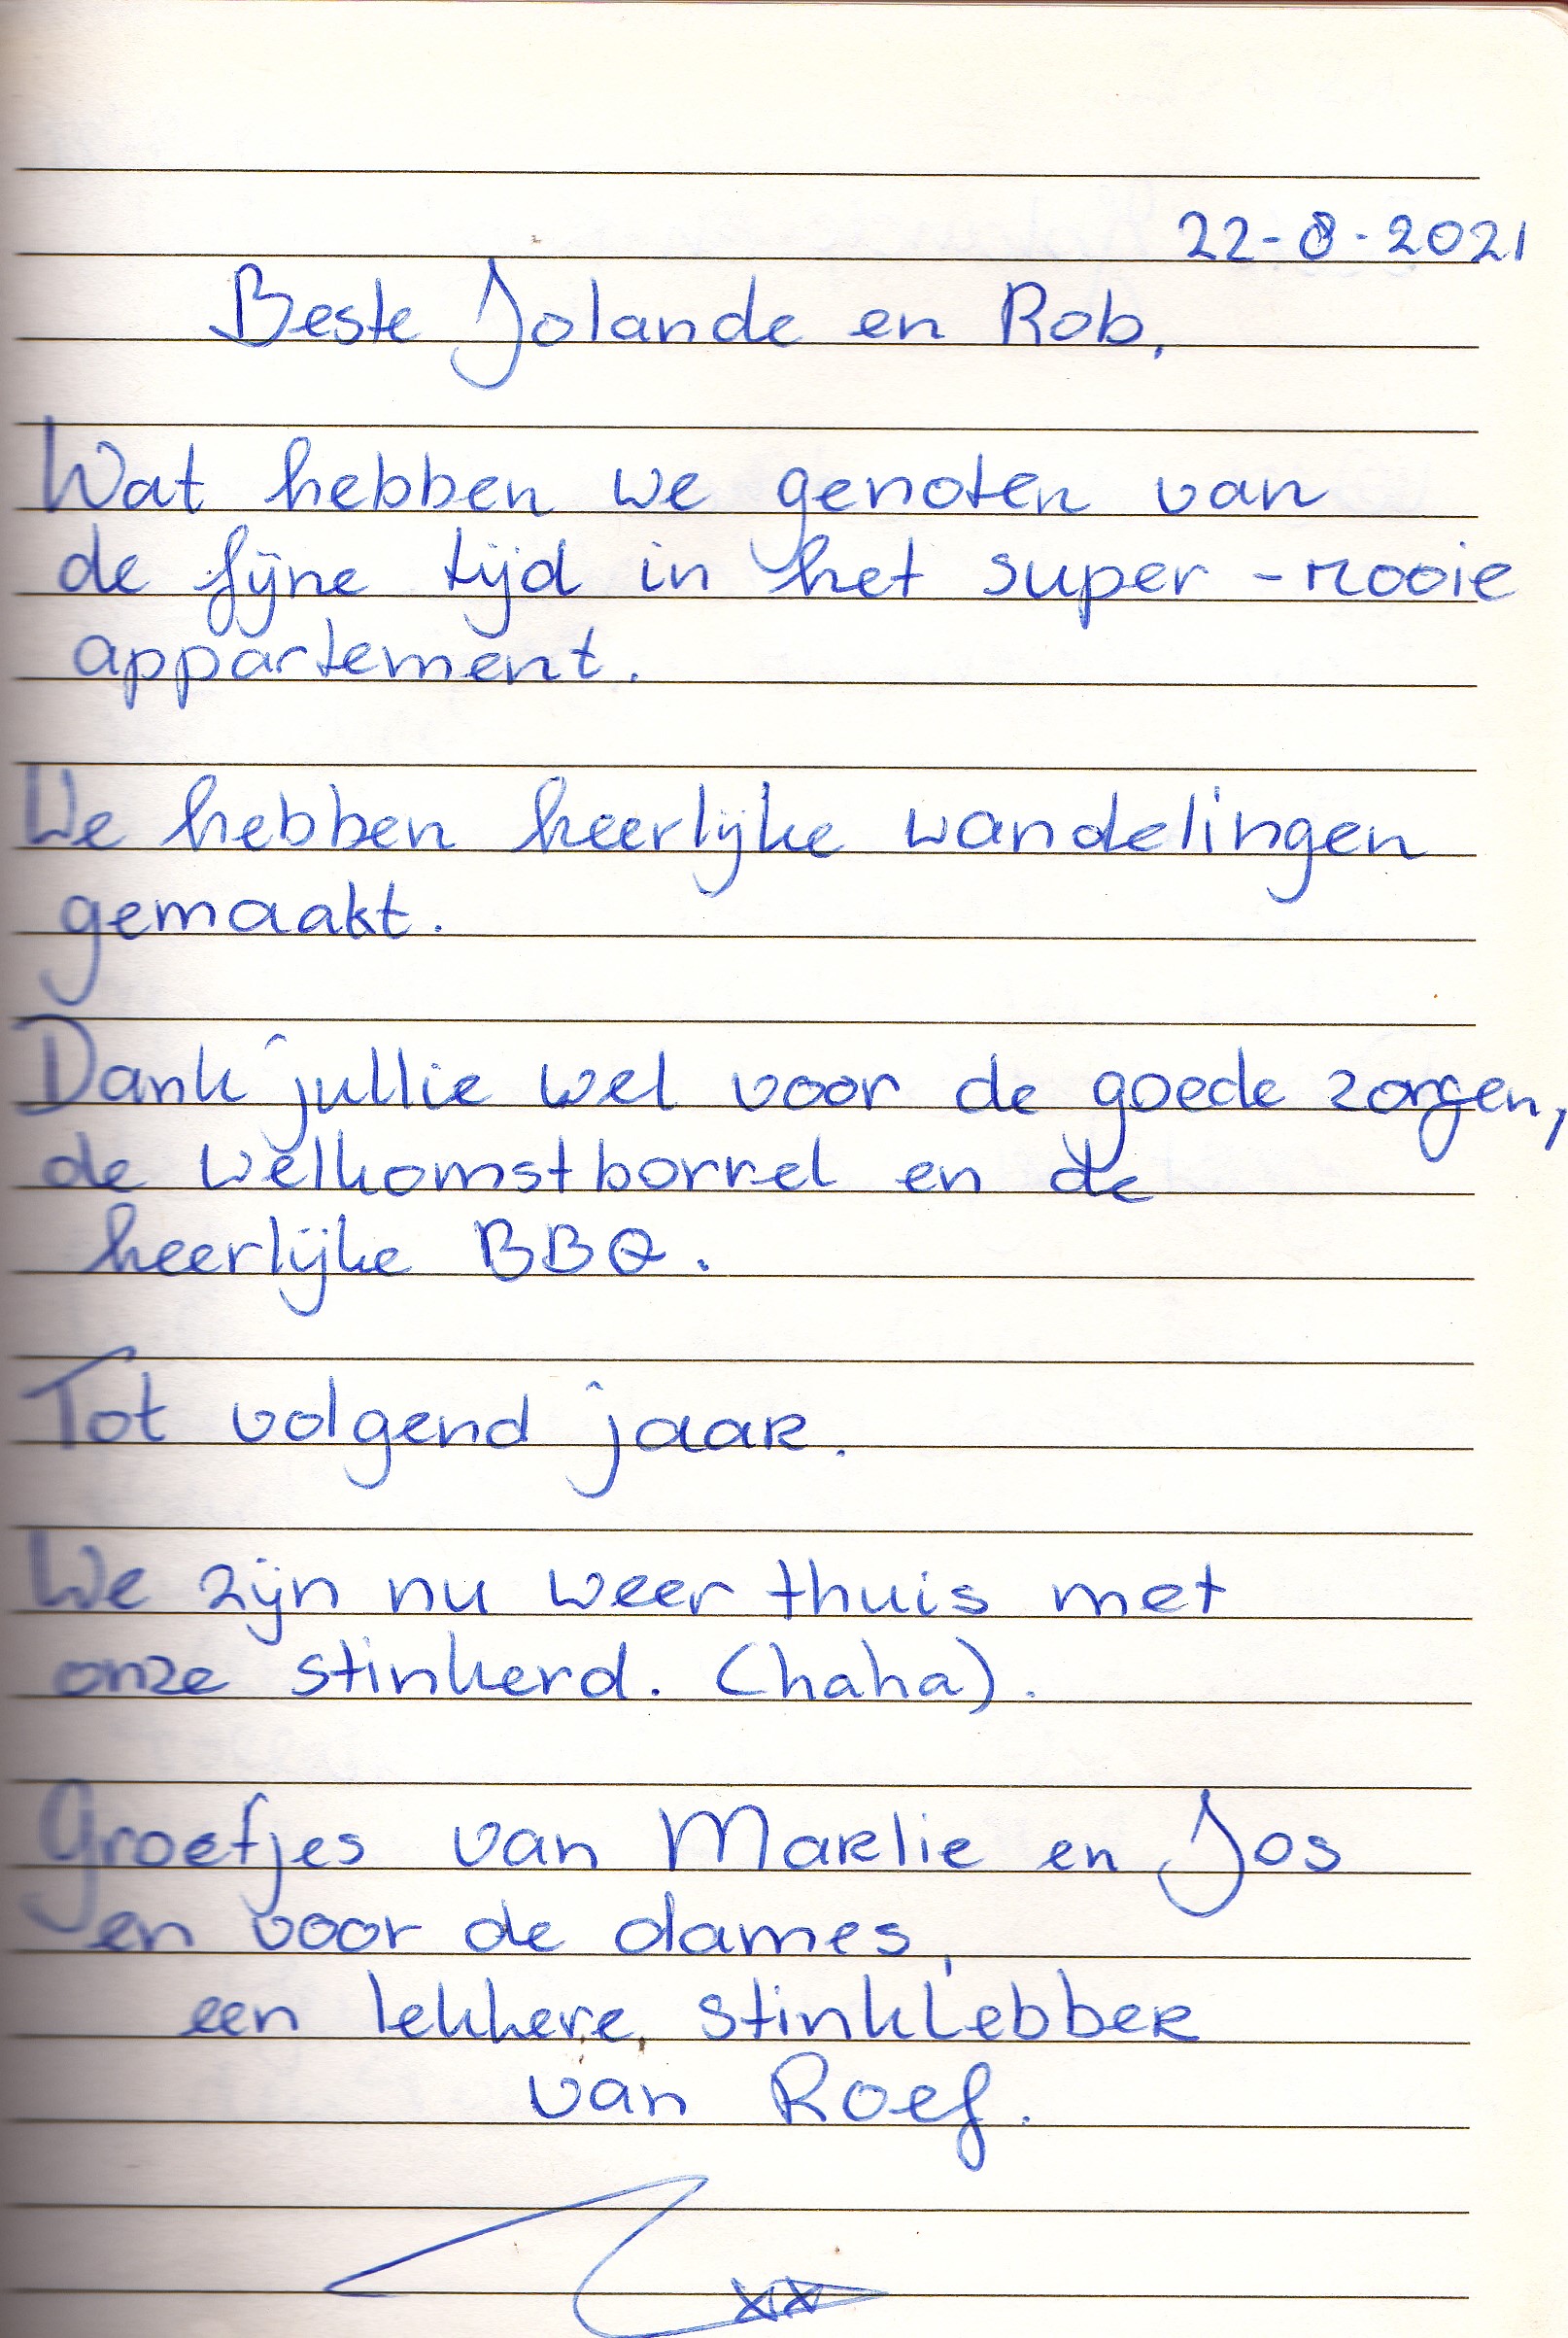 22-8-2021
Beste Jolande en Rob,
Wat hebben we genoten van
de fijne tijd in het super-mooie
appartement.
We hebben heerlijke wandelingen
gemaakt.
Dank jullie wel voor de goede zorgen,
de welkomstborrel en de
heerlijke BBQ.
Tot volgend jaar.
We zijn nu weer thuis met
onze stinkerd. (haha).
Groetjes van Marlie en Jos
en voor de dames,
een lekkere stinklebber
van Roef.
xx